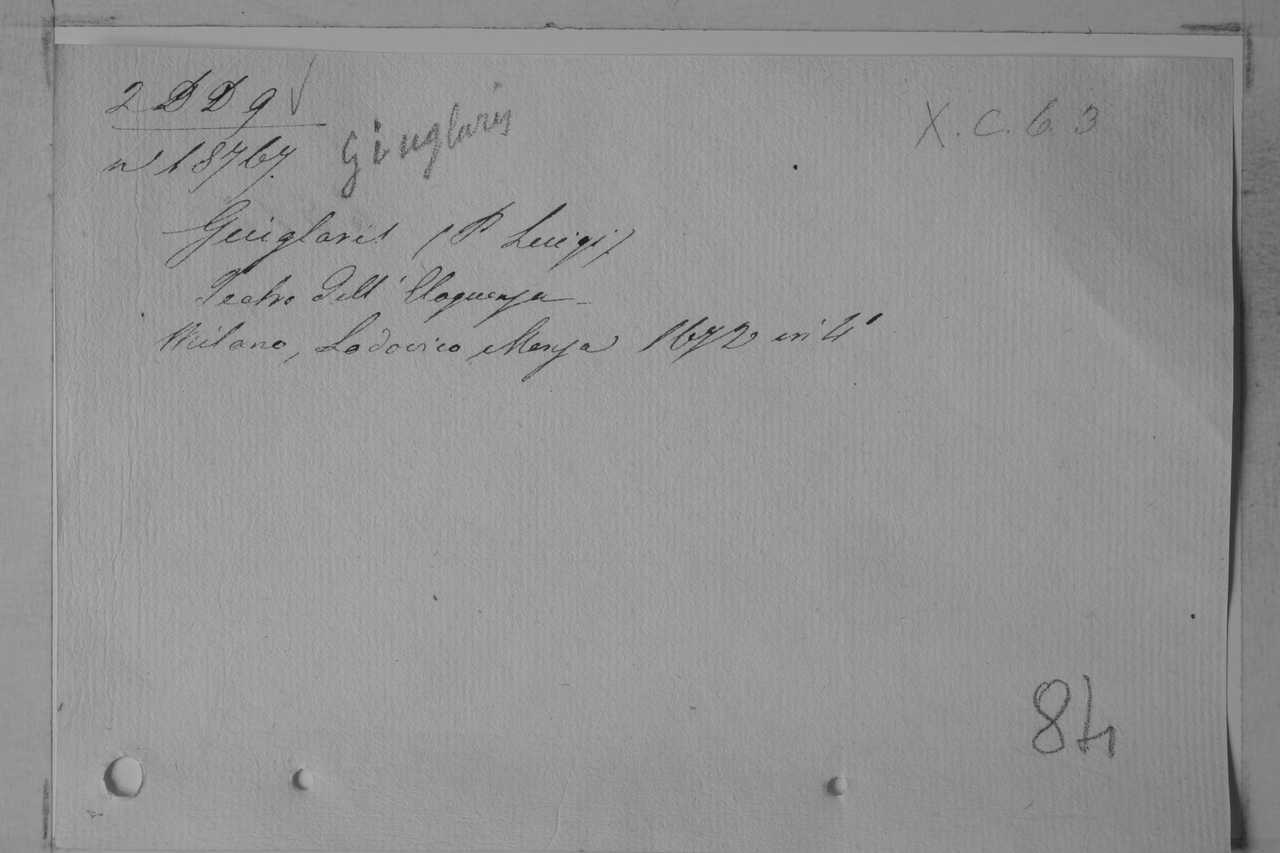 2 DD 9 √
n° 18767.
Giuglaris
X. C. 6. 3
Giuglaris (P Luigi)
Teatro dell'Eloquenza
Milano, Lodovico Monza 1672 in 4°
84